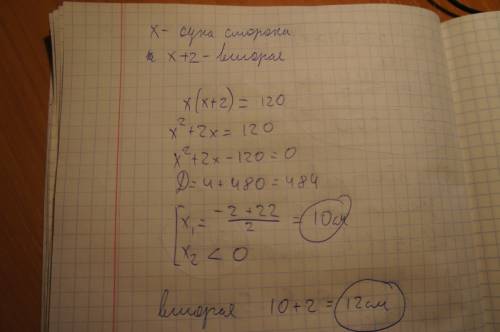 x - одна сторона
x+2 - вторая
x(x+2) = 120
x²+2x = 120
x²+2x-120=0
D=4+480=484
[x₁ = (-2+22)/2 = 10см
x₂ < 0
вторая 10+2 = 12см